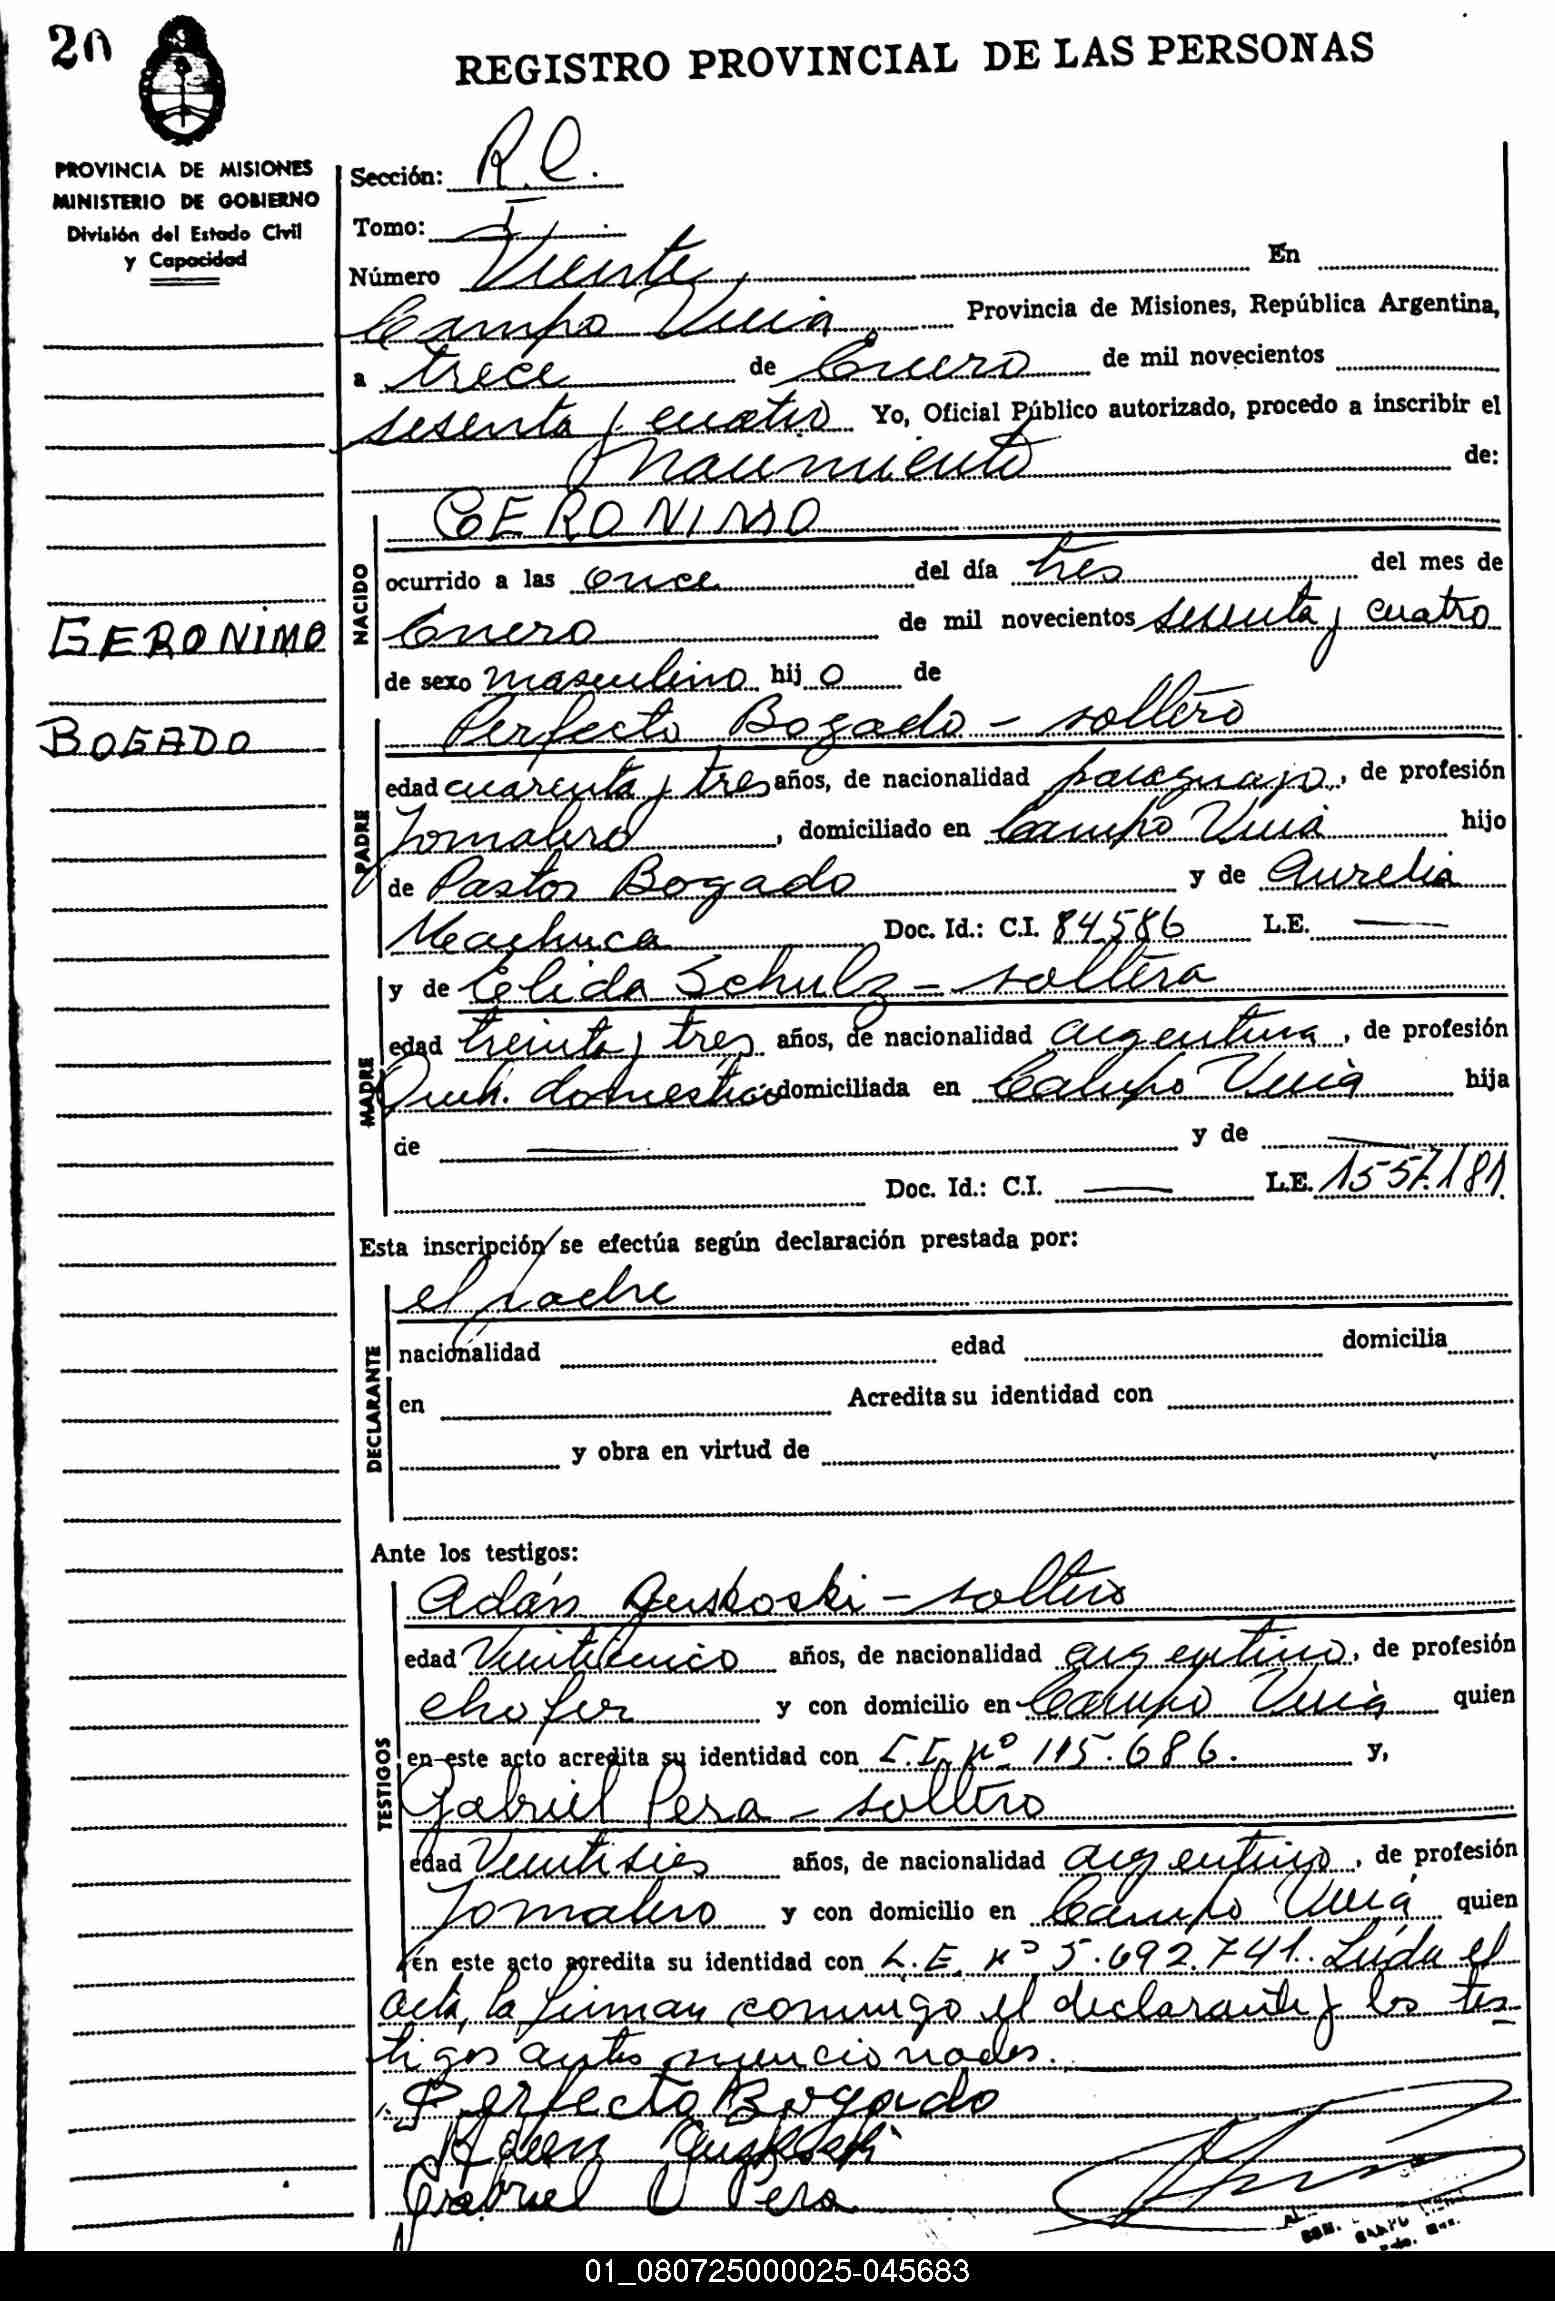 20
REGISTRO PROVINCIAL DE LAS PERSONAS
PROVINCIA DE MISIONES
MINISTERIO DE GOBIERNO
División del Estado Civil
y Capacidad
Sección: R.C.
Tomo: I
Número Veinte En
Campo Viera Provincia de Misiones, República Argentina,
a trece de Enero de mil novecientos
sesenta y cuatro Yo, Oficial Público autorizado, procedo a inscribir el
nacimiento de:
GERONIMO
NACIDO
ocurrido a las once del día tres del mes de
Enero de mil novecientos sesenta y cuatro
GERONIMO
de sexo masculino hijo de
BOGADO
Perfecto Bogado - soltero
PADRE
edad cuarenta y tres años, de nacionalidad paraguayo, de profesión
Jornalero, domiciliado en Campo Viera hijo
de Pastor Bogado y de Aurelia
Machuca Doc. Id.: C.I. 84586 L.E. —
y de Elida Schulz - soltera
MADRE
edad treinta y tres años, de nacionalidad argentina, de profesión
Queh. domésticos domiciliada en Campo Viera hija
de — y de —
Doc. Id.: C.I. — L.E. 1557.181
Esta inscripción se efectúa según declaración prestada por:
el padre
DECLARANTE
nacionalidad edad domicilia
en Acredita su identidad con
y obra en virtud de
Ante los testigos:
Adán Guskoski - soltero
TESTIGOS
edad Veinticinco años, de nacionalidad argentino, de profesión
chofer y con domicilio en Campo Viera quien
en este acto acredita su identidad con C.I. nº 115.686. y,
Gabriel Pera - soltero
edad Veintiseis años, de nacionalidad argentino, de profesión
Jornalero y con domicilio en Campo Viera quien
en este acto acredita su identidad con L.E. nº 5.692.741. Leída el
acta, la firman conmigo el declarante y los tes-
tigos antes mencionados.
Perfecto Bogado
Gabriel Pera
01_080725000025-045683